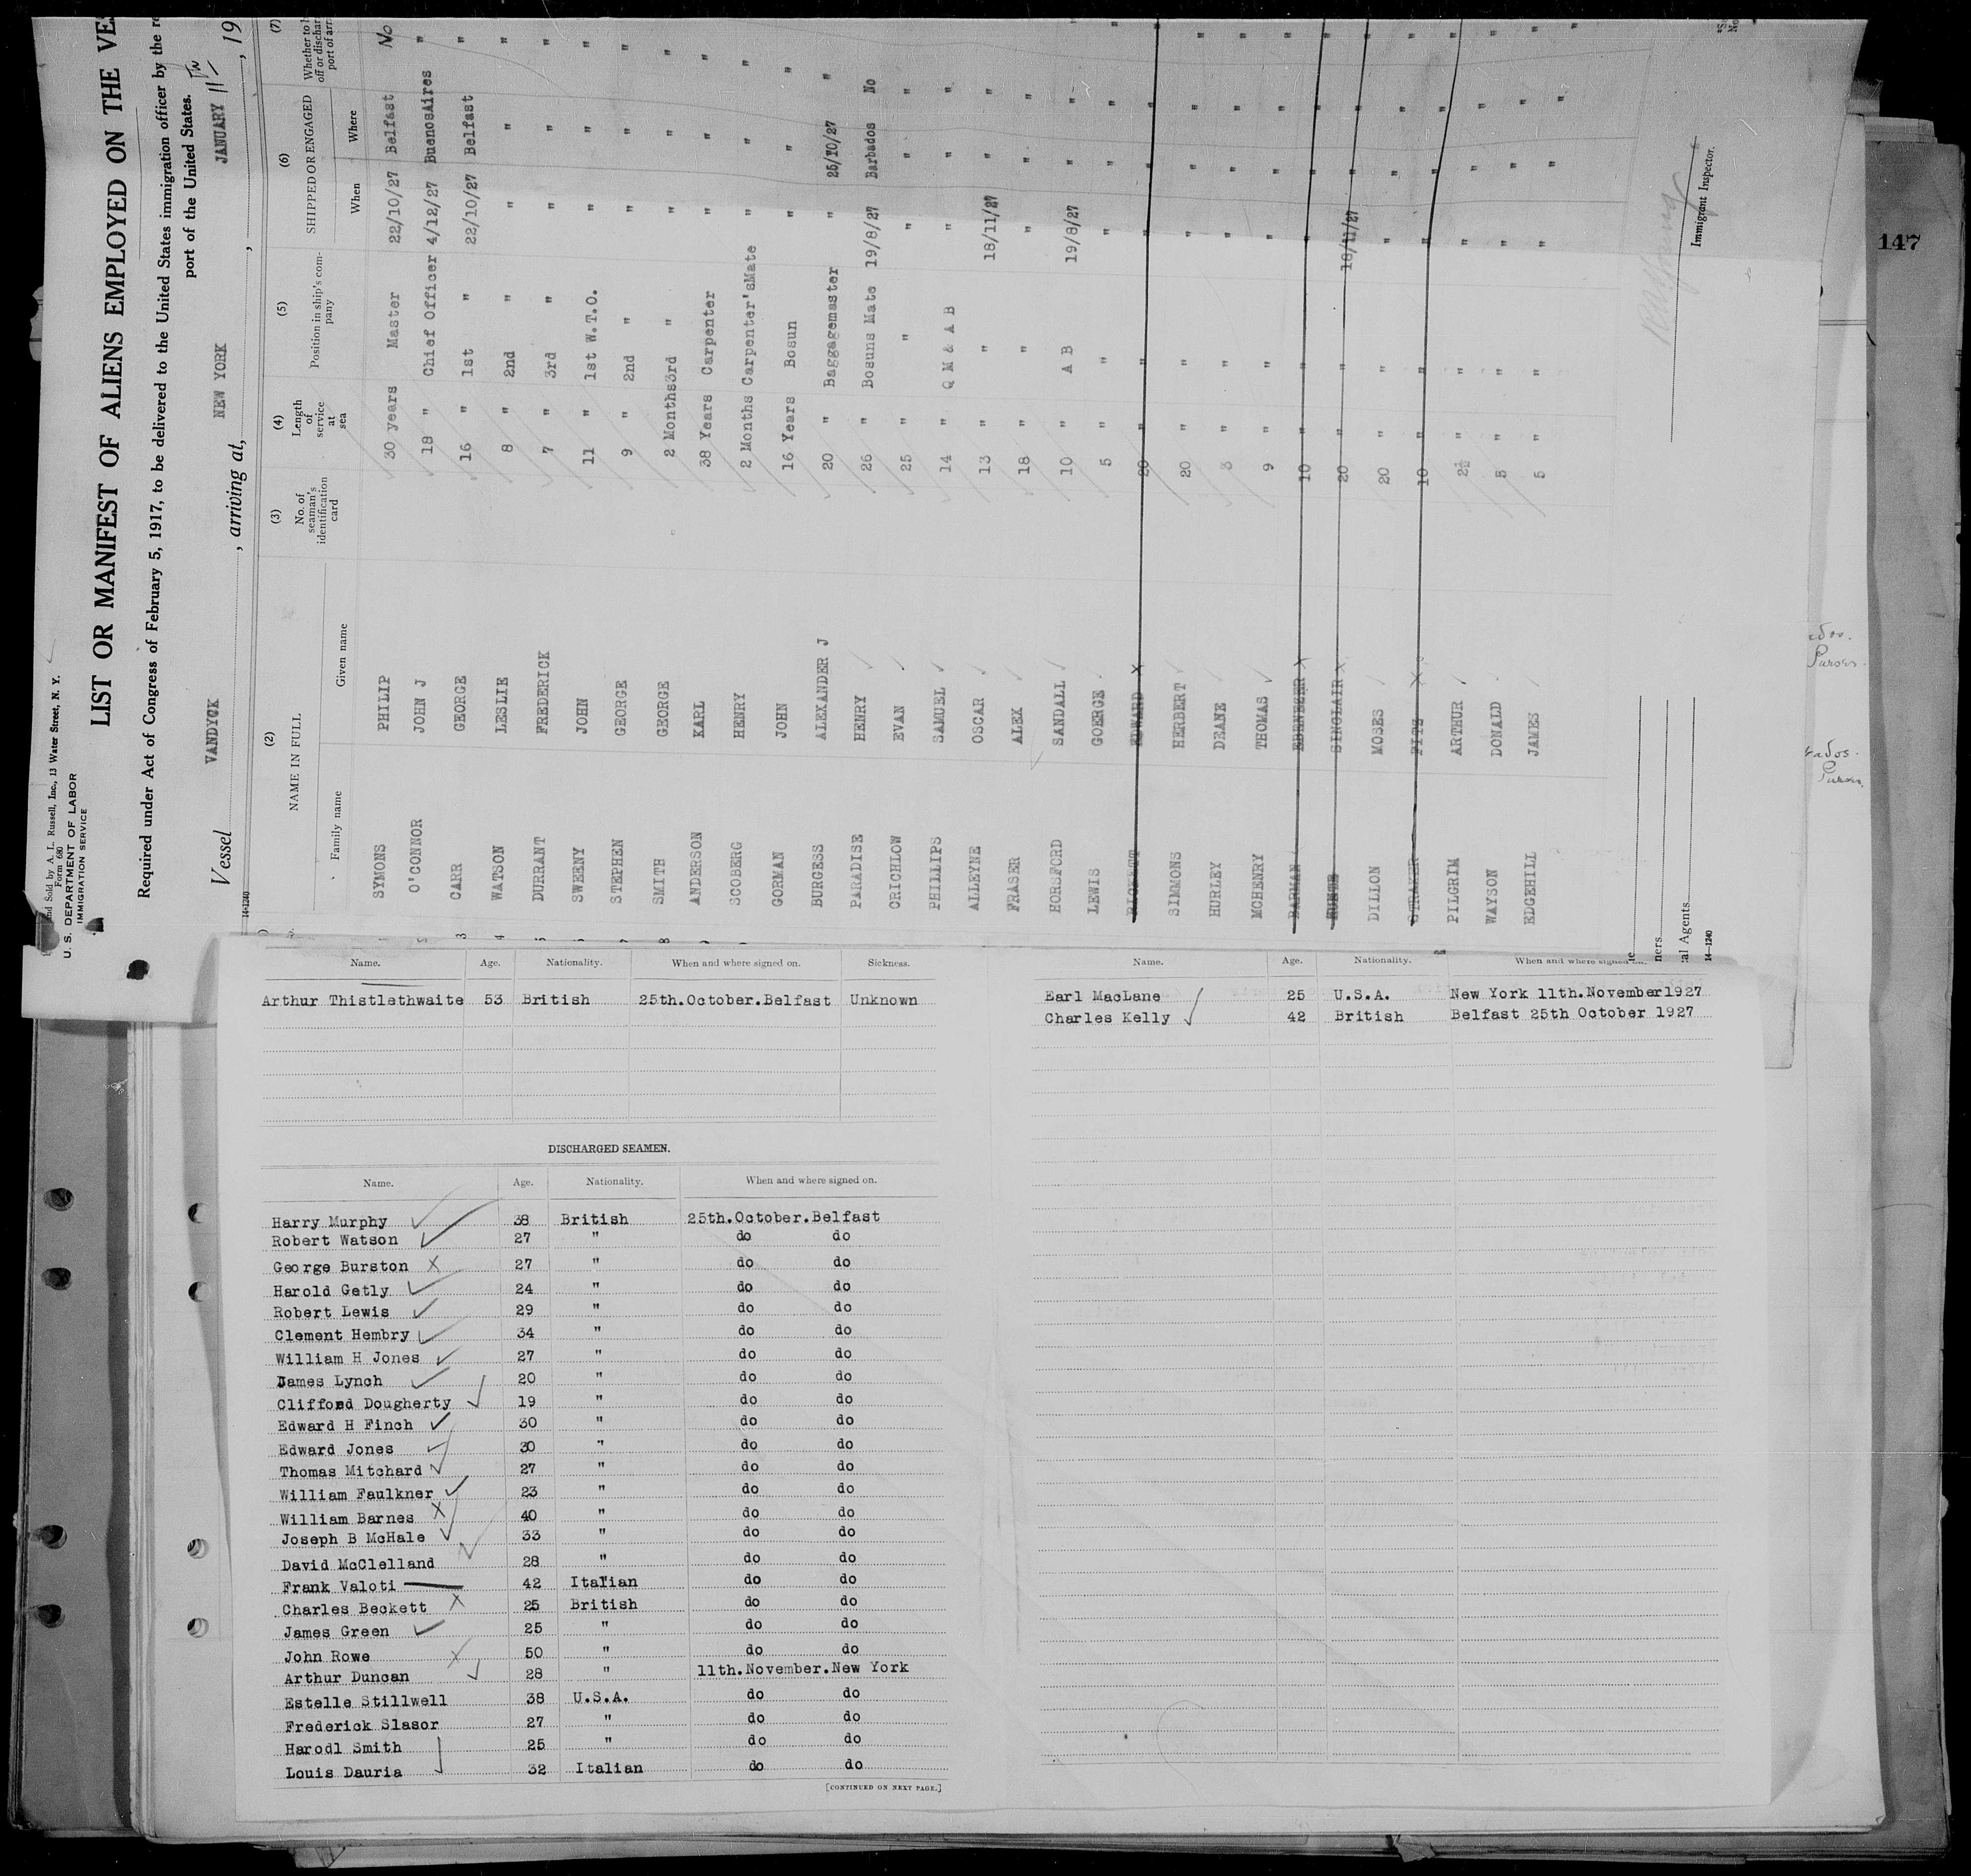 and Sold by A. L. Russell, Inc., 13 Water Street, N. Y.
Form 680
U. S. DEPARTMENT OF LABOR
IMMIGRATION SERVICE
LIST OR MANIFEST OF ALIENS EMPLOYED ON THE VES
Required under Act of Congress of February 5, 1917, to be delivered to the United States immigration officer by the re
port of the United States.
Vessel VANDYCK, arriving at, NEW YORK, JANUARY 11TH, 19
14-1240
(2) (3) (4) (5) (6) (7)
NAME IN FULL No. of seaman's identification card Length of service at sea Position in ship's company SHIPPED OR ENGAGED Whether to b off or dischar port of arr
Family name Given name When Where
SYMONS PHILIP 30 years Master 22/10/27 Belfast No
O'CONNOR JOHN J 18 " Chief Officer 4/12/27 BuenosAires "
3 CARR GEORGE 16 " 1st " 22/10/27 Belfast "
4 WATSON LESLIE 8 " 2nd " " " "
5 DURRANT FREDERICK 7 " 3rd " " " "
SWEENY JOHN 11 " 1st W.T.O. " " "
STEPHEN GEORGE 9 " 2nd " " " "
8 SMITH GEORGE 2 Months 3rd " " " "
ANDERSON KARL 38 Years Carpenter " " "
SCOBERG HENRY 2 Months Carpenter'sMate " " "
GORMAN JOHN 16 Years Bosun " " "
BURGESS ALEXANDER J 20 " Baggagemaster " 25/10/27 "
PARADISE HENRY 26 " Bosuns Mate 19/8/27 Barbados No
CRICHLOW EVAN 25 " " " " "
PHILLIPS SAMUEL 14 " Q M & A B " " "
ALLEYNE OSCAR 13 " " 18/11/27 " "
FRASER ALEX 18 " " " " "
HORSFORD SANDALL 10 " A B 19/8/27 " "
LEWIS GOERGE 5 " " " " "
EDWARD X 20 " " " " "
SIMMONS HERBERT 20 " " " " "
HURLEY DEANE 3 " " " " "
MCHENRY THOMAS 9 " " " " "
BARMAN EBENEZER X 10 " " " " "
SINCLAIR X 20 " " 18/11/27 " "
DILLON MOSES 20 " " " " "
STRAKER FITZ X 10 " " " " "
PILGRIM ARTHUR 2½ " " " " "
WAYSON DONALD 5 " " " " "
EDGEHILL JAMES 5 " " " " "
Immigrant Inspector.
ners
al Agents
14-1240
147
ados.
Purser.
ados.
Purser.
Name. Age. Nationality. When and where signed on. Sickness.
Arthur Thistlethwaite 53 British 25th.October.Belfast Unknown
DISCHARGED SEAMEN.
Name. Age. Nationality. When and where signed on.
Harry Murphy 38 British 25th.October.Belfast
Robert Watson 27 " do do
George Burston X 27 " do do
Harold Getly 24 " do do
Robert Lewis 29 " do do
Clement Hembry 34 " do do
William H Jones 27 " do do
James Lynch 20 " do do
Clifford Dougherty 19 " do do
Edward H Finch 30 " do do
Edward Jones 30 " do do
Thomas Mitchard 27 " do do
William Faulkner 23 " do do
William Barnes X 40 " do do
Joseph B McHale 33 " do do
David McClelland 28 " do do
Frank Valoti 42 Italian do do
Charles Beckett X 25 British do do
James Green 25 " do do
John Rowe X 50 " do do
Arthur Duncan 28 " 11th.November.New York
Estelle Stillwell 38 U.S.A. do do
Frederick Slasor 27 " do do
Harodl Smith 25 " do do
Louis Dauria 32 Italian do do
[CONTINUED ON NEXT PAGE.]
Name. Age. Nationality. When and where signed on.
Earl MacLane 25 U.S.A. New York 11th.November1927
Charles Kelly 42 British Belfast 25th October 1927